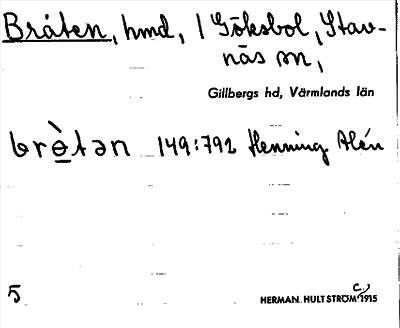 Bråten, hmd, / Göksbol, Stav-
näs sn,
Gillbergs hd, Värmlands län
brè̲tən 149:792 Henning Alén
5
HERMAN HULTSTRÖM c. 1915